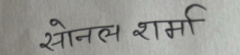 सोनल शर्मा